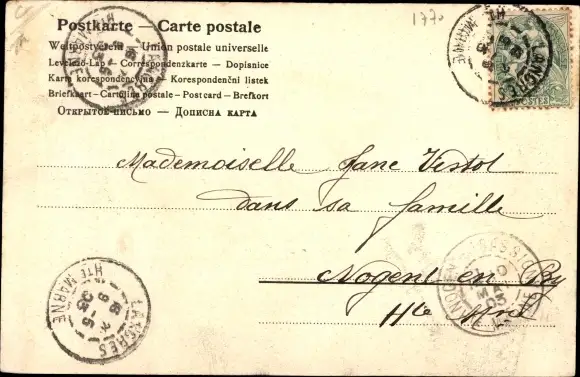 1770
Postkarte — Carte postale
Weltpostverein — Union postale universelle
Levelező-Lap — Correspondenzkarte — Dopisnice
Karta korespondencyjna — Korespondenční listek
Briefkaart — Cartolina postale — Postcard — Brefkort
Открытое письмо — Дописна карта
LANGRES
HTE MARNE
LANGRES
HTE MARNE
POSTES
Mademoiselle Jane
dans sa famille
Nogent en
Hte
LANGRES
HTE MARNE
03
NOGENT
MA
03